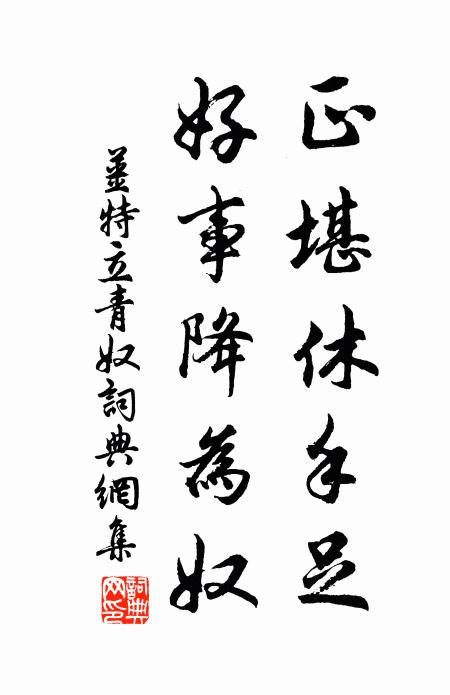 正堪休手足
好事降為奴
薑特立青奴詞典網集
詞典
网印